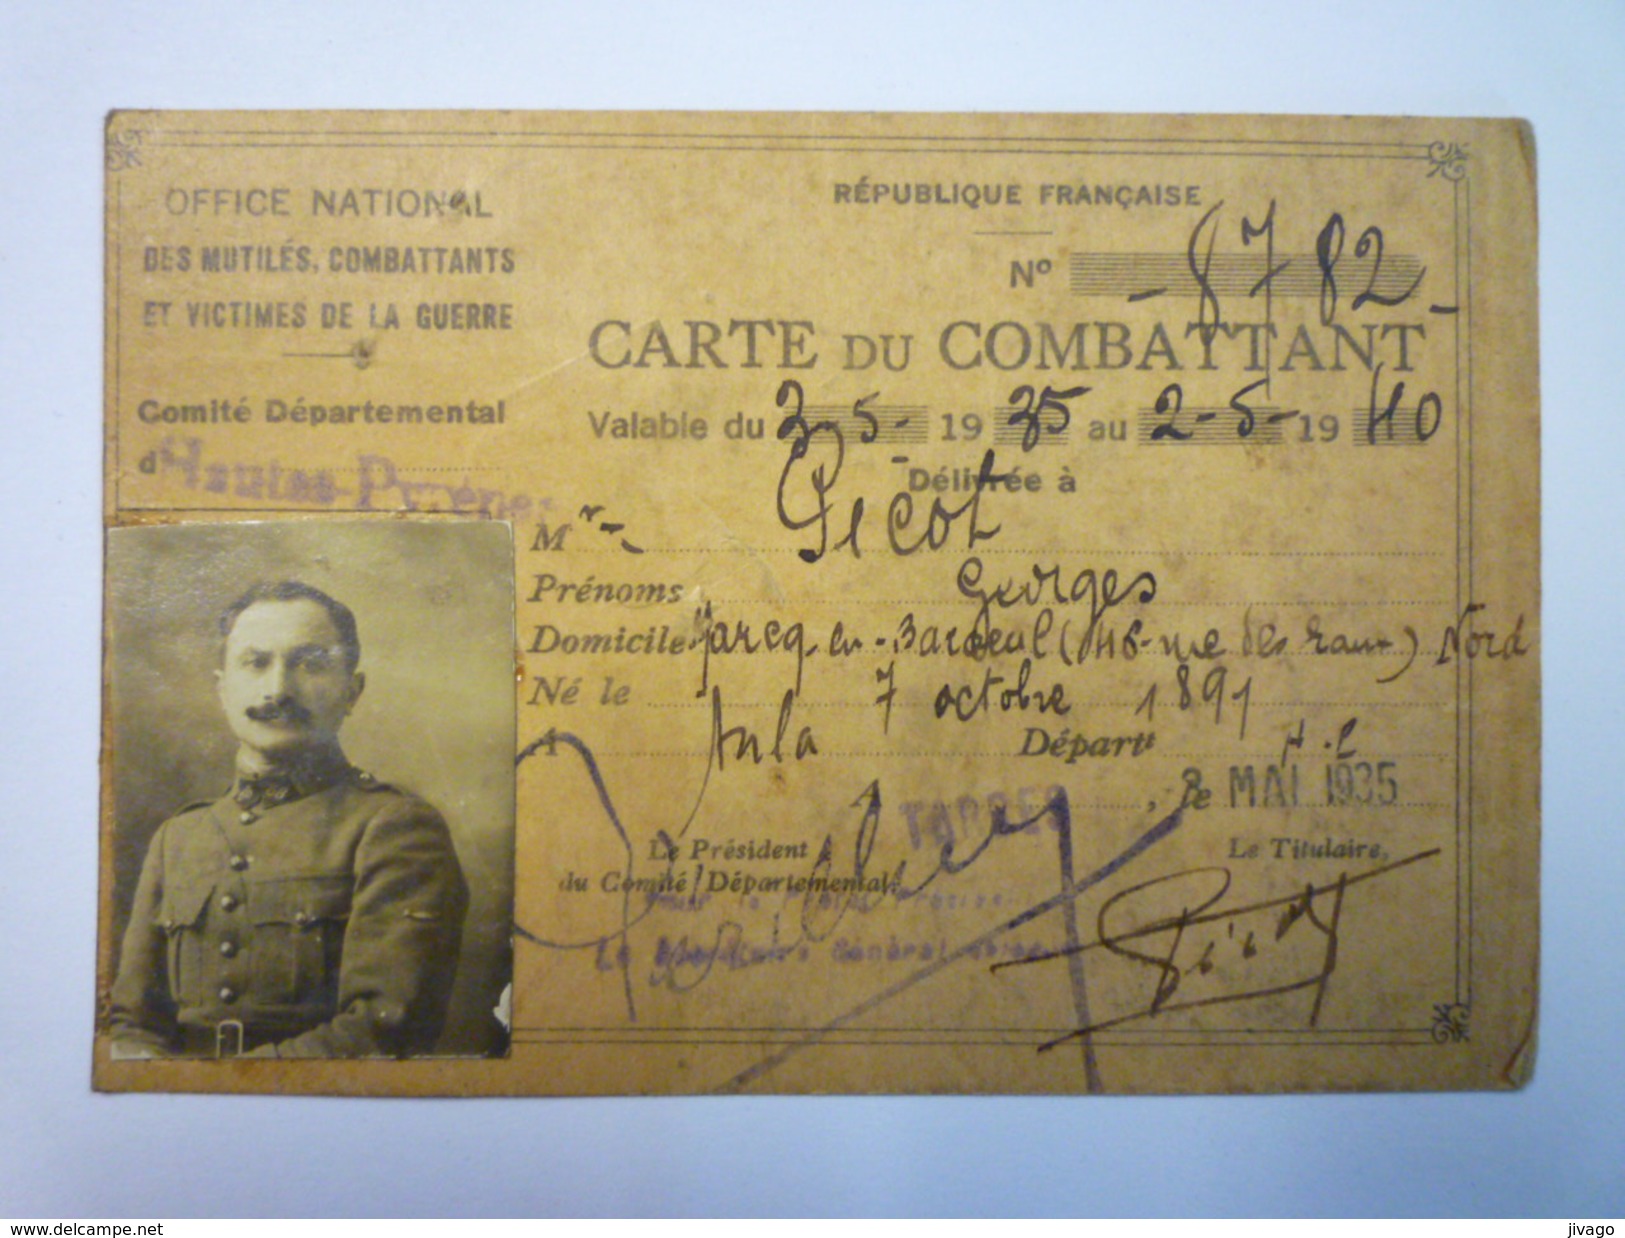 OFFICE NATIONAL
DES MUTILÉS, COMBATTANTS
ET VICTIMES DE LA GUERRE
Comité Départemental
d Hautes-Pyrénées
RÉPUBLIQUE FRANÇAISE
No - 8782 -
CARTE DU COMBATTANT
Valable du 3-5- 1935 au 2-5-1940
Délivrée à
Mr Picot
Prénoms Georges
Domicile Marcq-en-Baroeul (46 rue des ) Nord
Né le 7 octobre 1891
A Départt
A TARBES, le 3 MAI 1935
Le Président
du Comité Départemental,
Le Titulaire,
Le Général
Picot
www.delcampe.net
jivago